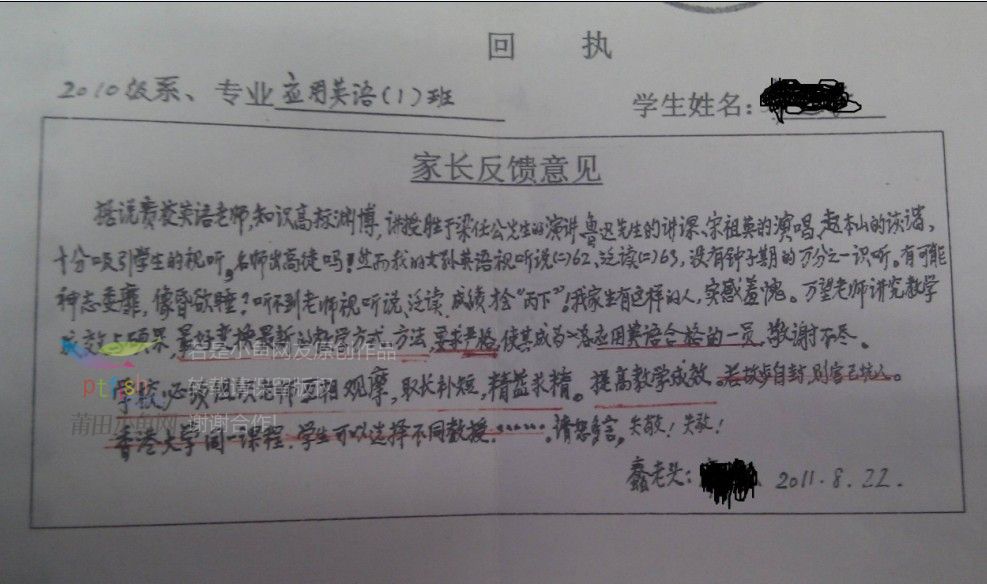 回 执
2010级系、专业应用英语(1)班 学生姓名:
家长反馈意见
据说贵校英语老师,知识高标渊博,讲授胜于梁任公先生的演讲、鲁迅先生的讲课、宋祖英的演唱、赵本山的诙谐,
十分吸引学生的视听。名师出高徒吗!然而我的女孙英语视听说(二)62、泛读(二)63,没有钟子期的万分之一识听。有可能
神志委靡,像昏欲睡?听不到老师视听说、泛读,成绩才会“丙下”!我家生有这样的人,实感羞愧。万望老师讲究教学
实效与硕果,最好变换最新的教学方式、方法,要求严格,使其成为 应用英语合格的一员。敬谢不尽。
学校,必须组织老师互相观摩,取长补短,精益求精。提高教学成效。若故步自封,则害己坑人。
香港大学同一课程,学生可以选择不同教授……。请恕多言,失敬!失敬!
蠢老头: 2011.8.22.
若是小鱼网友原创作品
转载请保留版权
莆田小鱼网 谢谢合作!